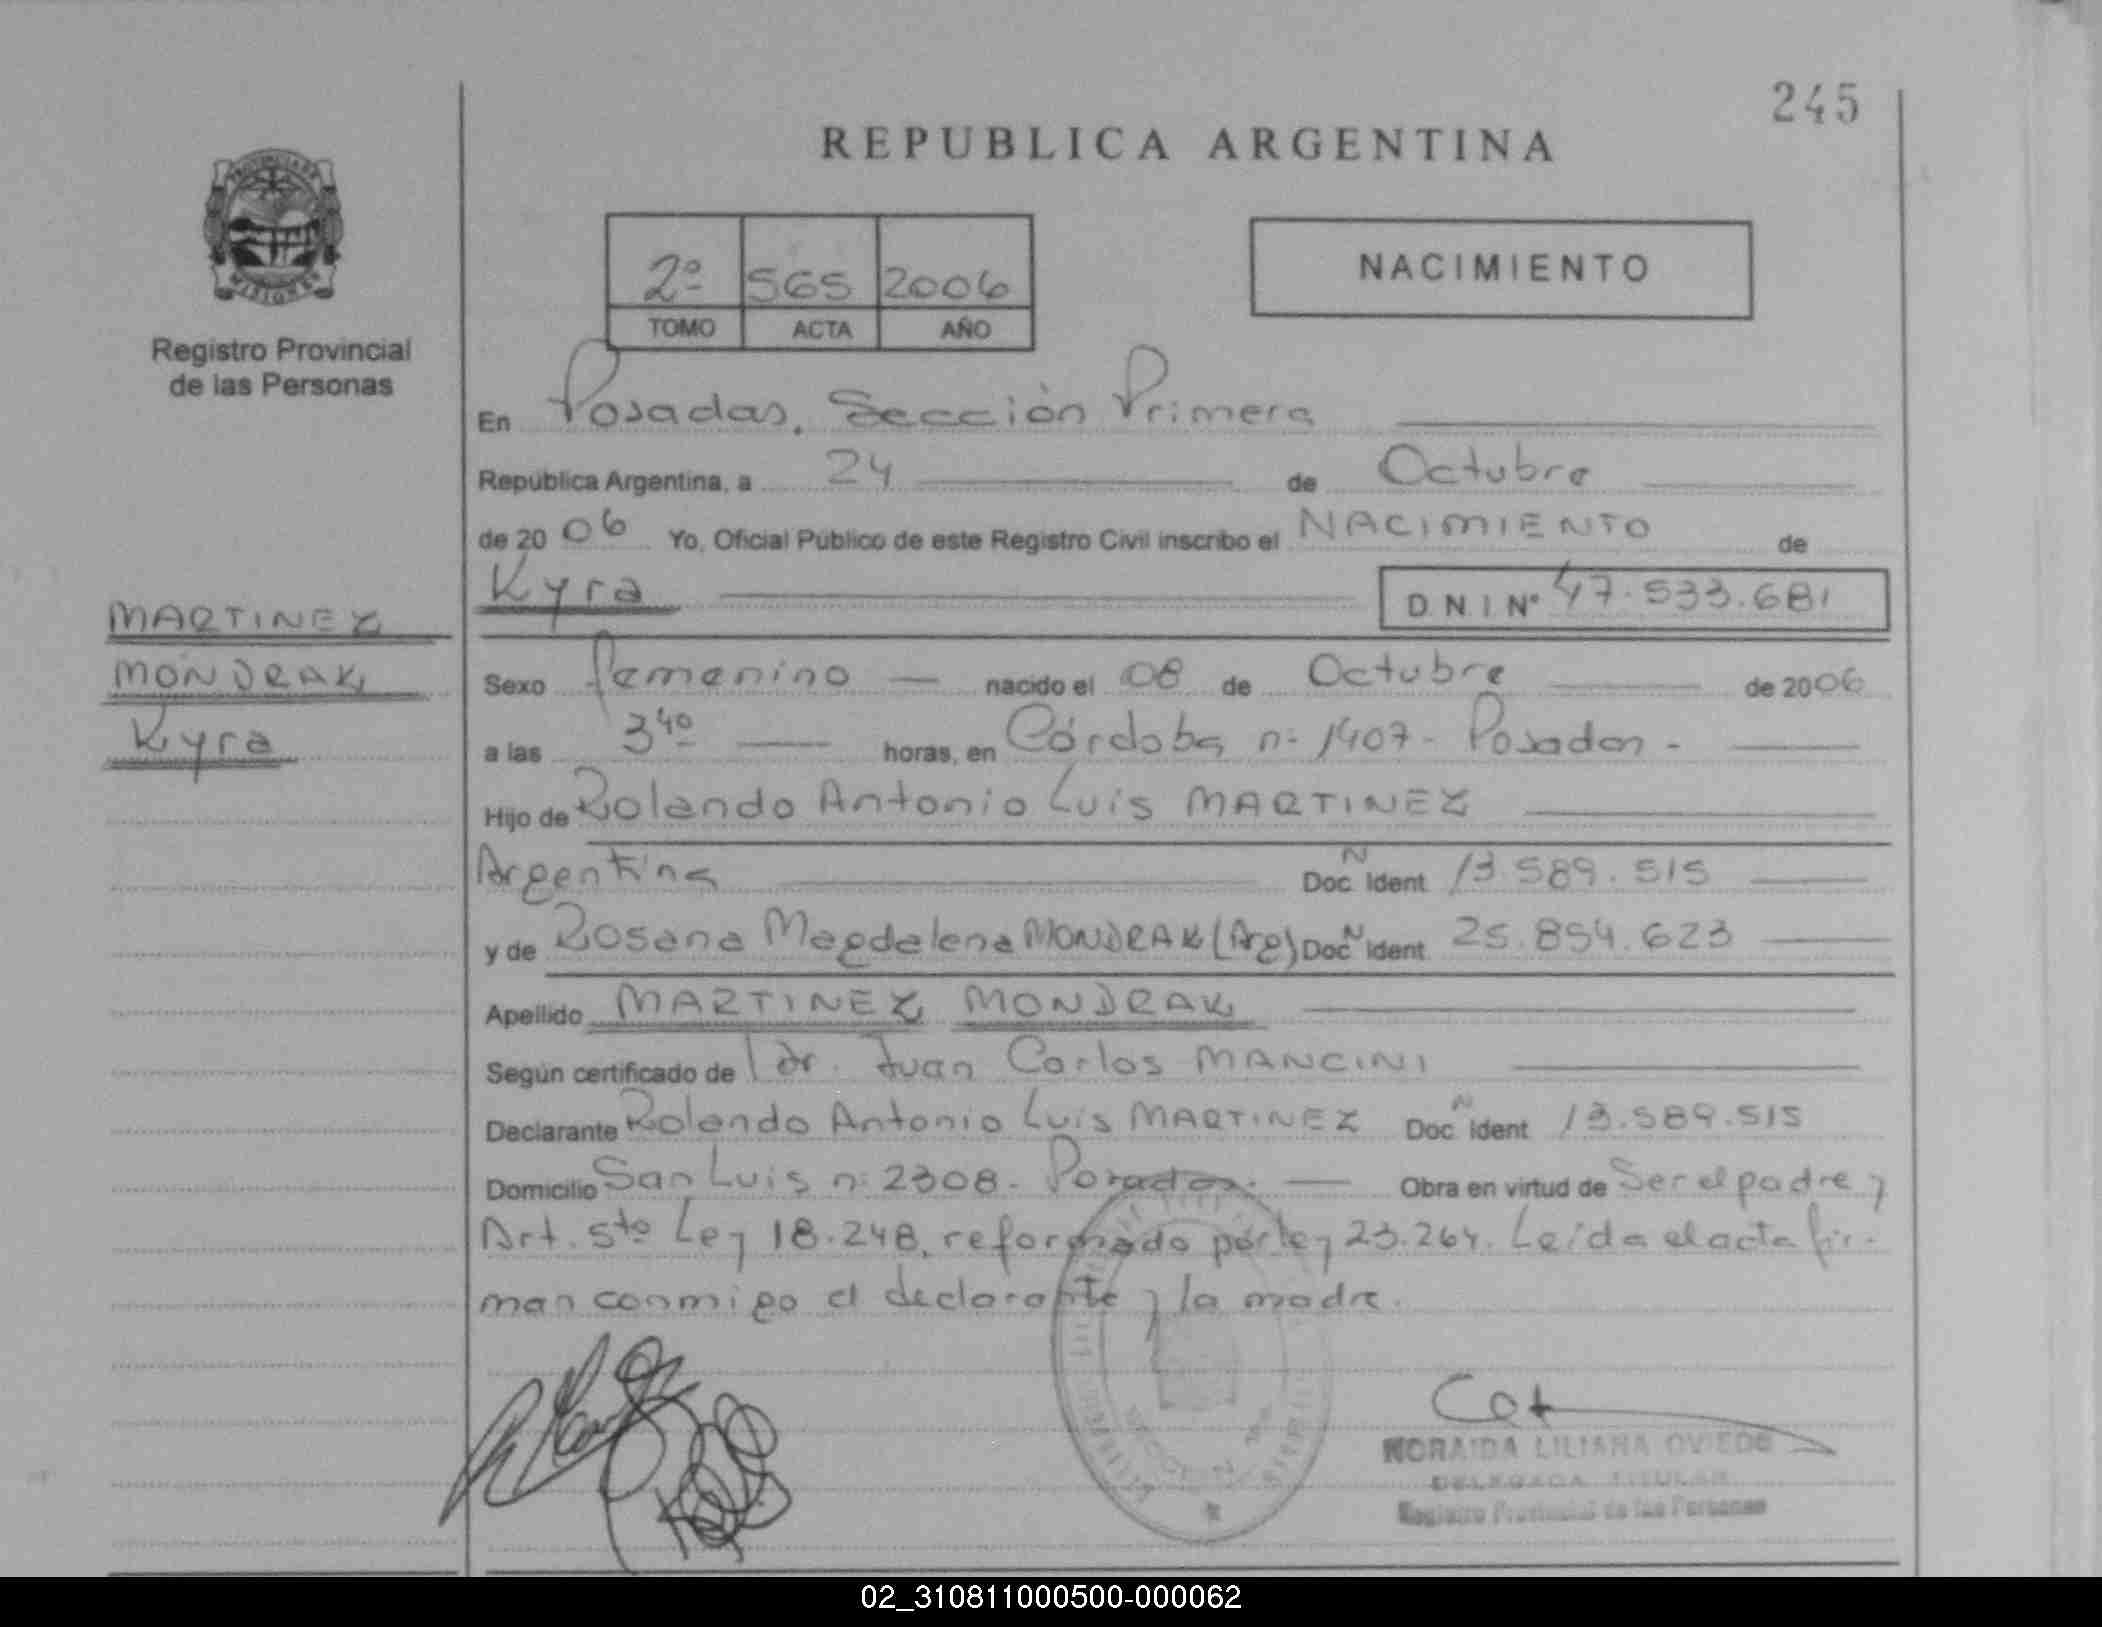 245
REPUBLICA ARGENTINA
PROVINCIA DE
MISIONES
Registro Provincial
de las Personas
2º 565 2006
TOMO ACTA AÑO
NACIMIENTO
En Posadas, Sección Primera
República Argentina, a 24 de Octubre
de 2006 Yo, Oficial Público de este Registro Civil inscribo el NACIMIENTO de
Kyra D.N.I Nº 47.533.681
MARTINEZ
MONDRAK
Kyra
Sexo femenino nacido el 08 de Octubre de 2006
a las 3⁴⁰ horas, en Córdoba nº 1407- Posadas -
Hijo de Rolando Antonio Luis MARTINEZ
Argentina Doc N Ident 13.589.515
y de Rosana Magdalena MONDRAK (Arg) Doc N Ident 25.854.623
Apellido MARTINEZ MONDRAK
Según certificado de dr. Juan Carlos MANCINI
Declarante Rolando Antonio Luis MARTINEZ Doc N Ident 13.589.515
Domicilio San Luis nº 2308- Posadas. Obra en virtud de Ser el padre y
Art. 5to Ley 18.248, reformado por ley 23.264. Leída el acta fir-
man conmigo el declarante y la madre.
NORAIDA LILIANA OVIEDO
DELEGADA TITULAR
Registro Provincial de las Personas
02_310811000500-000062